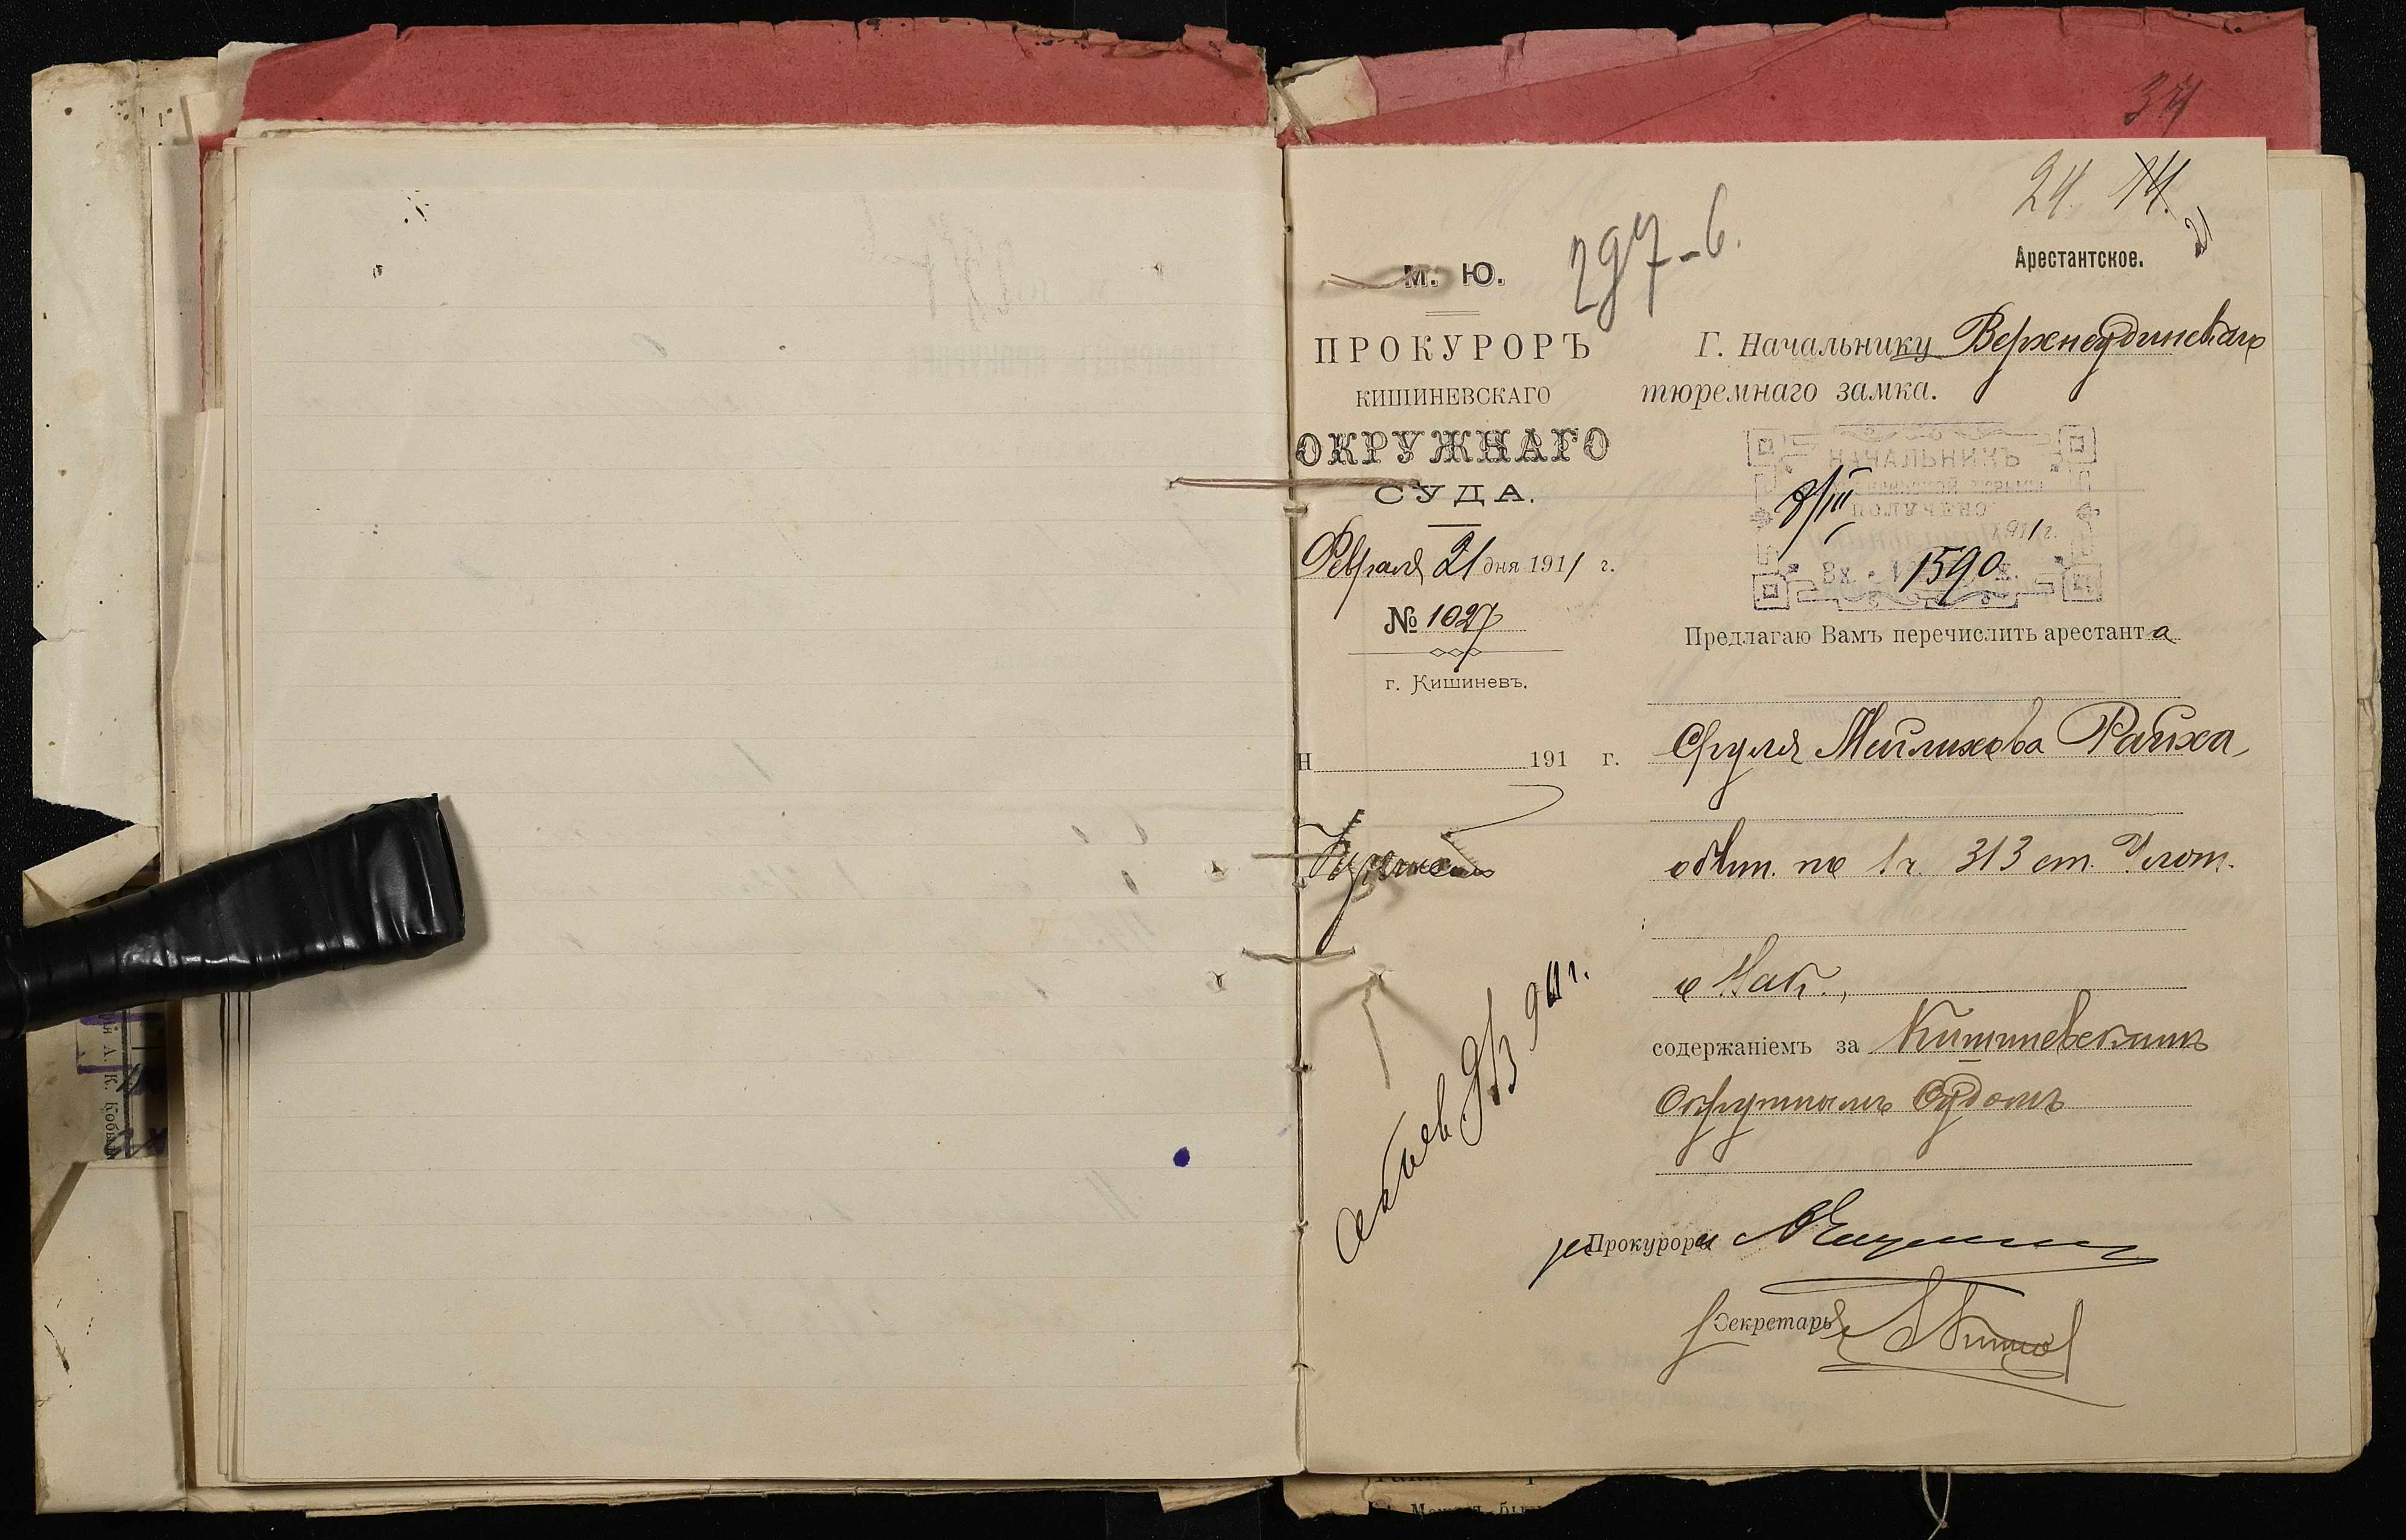 34
24 14.
21
297-6.
Арестантское.
М. Ю.
ПРОКУРОРЪ
КИШИНЕВСКАГО
ОКРУЖНАГО
СУДА.
Февраля 21 дня 1911 г.
№ 1027
г. Кишиневъ.
Н 191 г.
Г. Начальнику Верхнеудинскаго
тюремнаго замка.
НАЧАЛЬНИКЪ
ПОЛУЧЕНО
8/III 1911 г.
Вх. № 1590
Предлагаю Вамъ перечислить арестанта
Сруля Мейлихова Райха,
обвин. по 1 ч. 313 ст. Улож.
о Нак.,
содержаніемъ за Кишиневскимъ
Окружнымъ Судомъ
9/3 911 г.
Прокурора
Секретарь